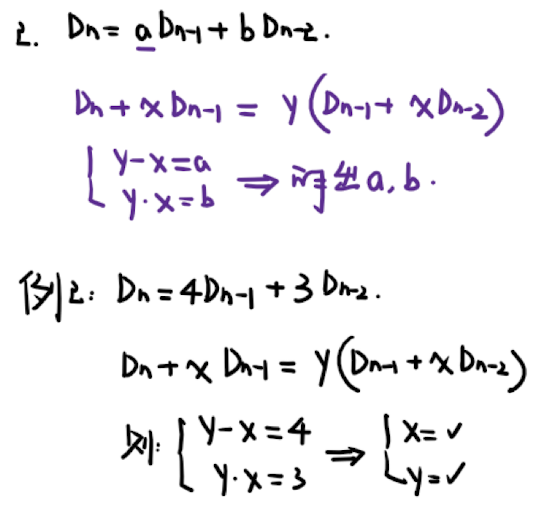 2. Dn = aDn-1 + bDn-2.
Dn + xDn-1 = y(Dn-1 + xDn-2)
{ y-x=a
y·x=b ⇒ 得出a,b.
例2: Dn = 4Dn-1 + 3Dn-2.
Dn + xDn-1 = y(Dn-1 + xDn-2)
则: { y-x=4
y·x=3 ⇒ { x=✓
y=✓